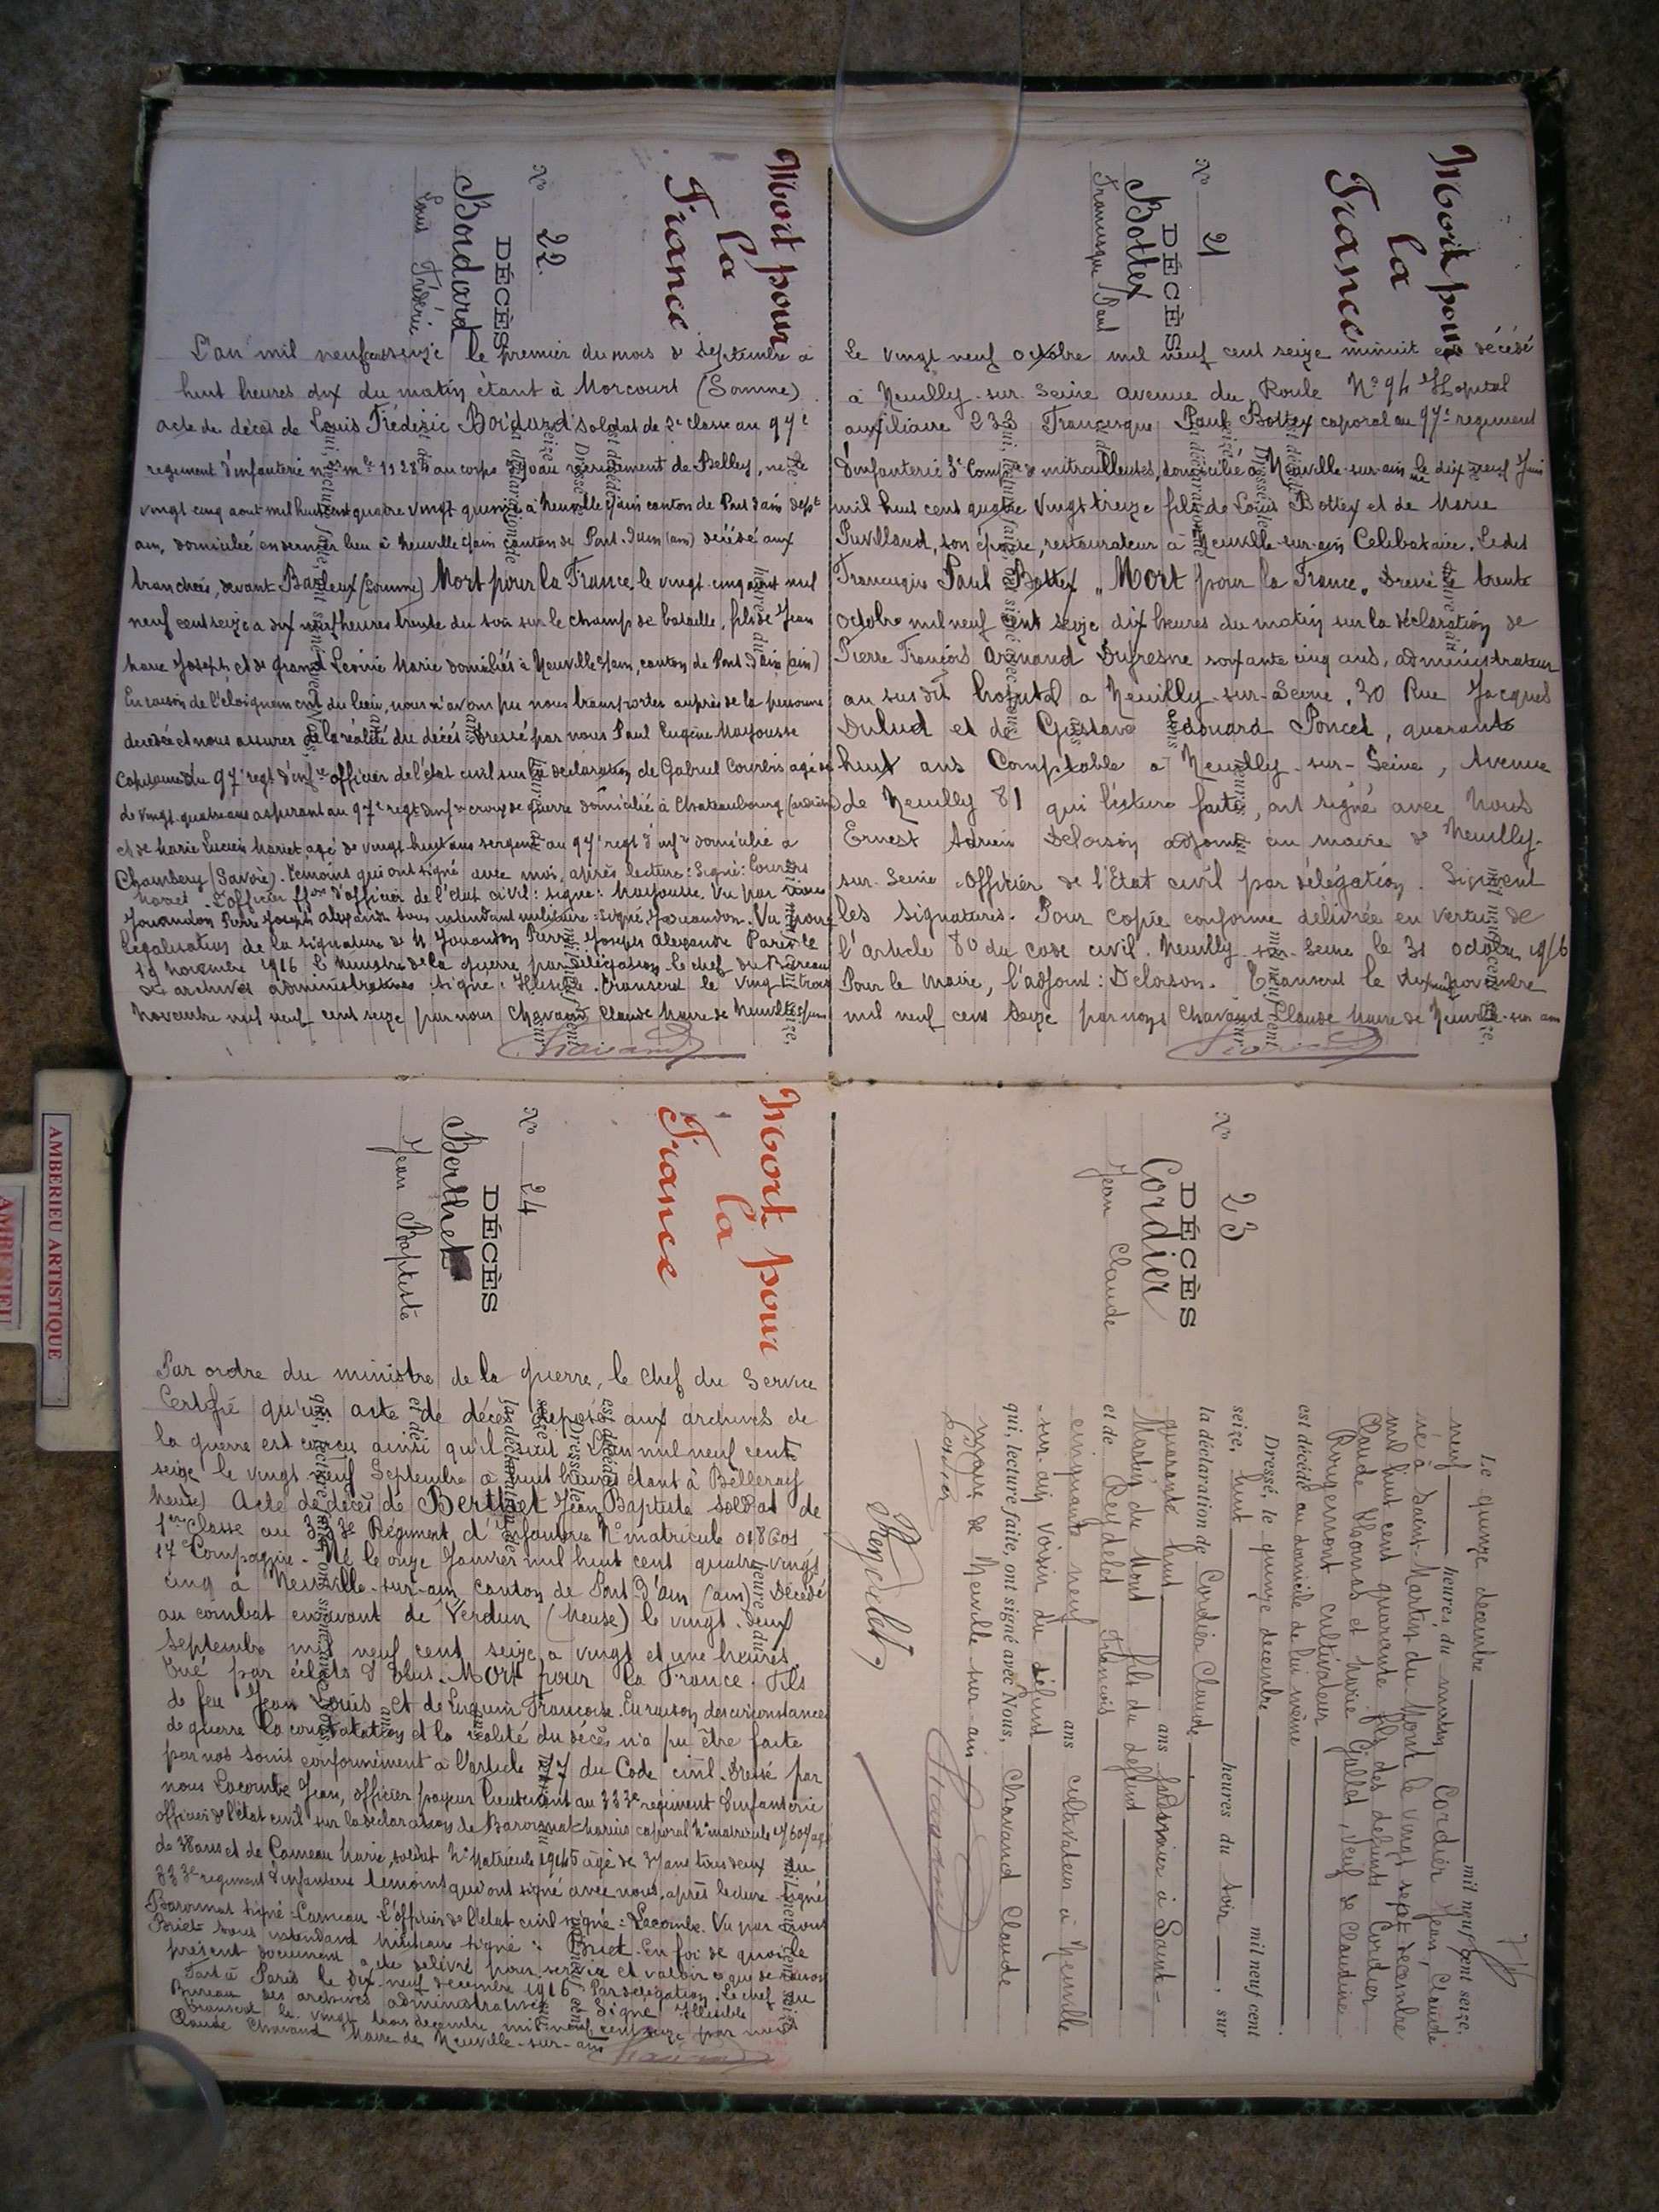 Mort pour
la
France
N° 21
DÉCÈS
Bottex
Francisque Paul
Le vingt neuf octobre mil neuf cent seize minuit est décédé
à Neuilly-sur-Seine avenue du Roule N° 94 Hopital
auxiliaire 233 Francisque Paul Bottex caporal au 97e regiment
d'infanterie 3e Comp de mitrailleuses, domicilié à Neuville-sur-ain né le dix neuf Juin
mil huit cent quatre Vingt treize fils de Louis Bottex et de Marie
Puvilland, son épouse, restaurateur à Neuville-sur-ain Celibataire. Ledit
Francisque Paul Bottex "Mort pour la France" Dressé le trente
octobre mil neuf cent seize dix heures du matin sur la déclaration de
Pierre François Armand Dufresne soixante cinq ans, administrateur
au susdit hopital a Neuilly-sur-Seine, 30 Rue Jacques
Dulud et de Gustave Edouard Poncet, quarante
huit ans Comptable a Neuilly-sur-Seine, Avenue
de Neuilly 81 qui lecture faite, ont signé avec Nous
Ernest Adrien Deloison adjoint au maire de Neuilly-
sur-Seine officier de l'Etat civil par délégation. Suivent
les signatures. Pour copie conforme délivrée en vertu de
l'article 80 du code civil. Neuilly-sur-Seine le 31 octobre 1916
Pour le Maire, l'adjoint: Deloison. Transcrit le novembre
mil neuf cent seize par nous Chavand Claude Maire de Neuville-sur-ain
Chavand
Mort pour
la
France
N° 22.
DÉCÈS
Boidard
Louis Frédéric
L'an mil neuf cent seize le premier du mois de septembre à
huit heures dix du matin étant à Morcourt (Somme)
acte de décès de Louis Frédéric Boidard soldat de 2e classe au 97e
regiment d'infanterie n° mle 11284 au corps au recrutement de Belley, né le
vingt cinq aout mil huit cent quatre vingt quinze à Neuville s/ain canton de Pont d'ain dept
ain, domicilié en dernier lieu à Neuville s/ain canton de Pont-d'ain (ain) décédé aux
tranchées, devant Barleux (Somme) Mort pour la France, le vingt cinq aout mil
neuf cent seize a dix neuf heures trente du soir sur le champ de bataille, fils de Jean
Marie Joseph et de Grand Léonie Marie domiciliés à Neuville s/ain, canton de Pont d'ain (ain)
En raison de l'éloignement du lieu, nous n'avons pu nous transporter auprès de la personne
decedée et nous assurer de la réalité du décès. Dressé par nous Paul Eugène Mayousse
Capitaine du 97e regt d'infie officier de l'état civil sur la déclaration de Gabriel Courbis agé
de vingt-quatre ans aspirant au 97e regt d'infie croix de guerre domicilié à Chateaubourg
et de Marie Lucien Mariet, agé de vingt huit ans sergent au 97e regt d'infie domicilié a
Chambery (Savoie). Témoins qui ont signé avec moi, après lecture: Signé: Courbis
Mariet. L'officier ffon d'officier de l'état civil: signé: Mayousse. Vu par nous
Jouandon Pierre Joseph Alexandre sous intendant militaire: signé Jouandon. Vu pour
legalisation de la signature de M Jouandon Pierre Joseph Alexandre Paris le
18 Novembre 1916 le ministre de la guerre par délégation le chef du Bureau
des archives administratives signé: Illisible. Transcrit le vingt trois
Novembre mil neuf cent seize par nous Chavand Claude Maire de Neuville s/ain
Chavand
N° 23
DÉCÈS
Cordier
Jean Claude
Le quinze décembre mil neuf cent seize,
neuf heures du matin Cordier Jean, Claude
né à Saint-Martin du Mont le vingt sept décembre
mil huit cent quarante fils des défunts Cordier
Claude et Marie Gallet, veuf de Claudine
cultivateur
est décédé au domicile de lui même
Dressé, le quinze decembre mil neuf cent
seize, huit heures du soir, sur
la déclaration de Cordier Claude
quarante huit ans à Saint-
Martin du Mont fils du défunt
et de Reydelet François
cinquante neuf ans cultivateur à Neuville
sur-ain voisin du défunt
qui, lecture faite, ont signé avec Nous, Chavand Claude
maire de Neuville sur-ain
Cordier
Reydelet
Chavand
Mort pour
la
France
N° 24
DÉCÈS
Berthet
Jean Baptiste
Par ordre du ministre de la guerre, le chef du Service
Certifie qu'un acte de décès déposé aux archives de
la guerre est conçu ainsi qu'il suit L'an mil neuf cent
seize le vingt neuf Septembre a huit heures étant à Belleray
(Meuse) Acte de décès de Berthet Jean Baptiste soldat de
1ère Classe au 333e Régiment d'Infanterie N° matricule 018601
17e Compagnie. Né le onze Janvier mil huit cent quatre vingt
cinq à Neuville-sur-ain canton de Pont d'Ain (ain) Décédé
au combat en avant de Verdun (Meuse) le vingt-deux
septembre mil neuf cent seize a vingt et une heures.
Tué par éclats d'obus. Mort pour la France. Fils
de feu Jean Louis et de Luquin Françoise. En raison des circonstances
de guerre la constatation et la réalité du décès n'a pu être faite
par nos soins conformément a l'article 77 du Code civil. Dressé par
nous Lacombe Jean, officier payeur lieutenant au 333e regiment d'infanterie
officier de l'état civil sur la déclaration de Baronnat Marius caporal N° matricule agé
de 38 ans et de Carneau Marie, soldat N° Matricule 19145 agé de 37 ans tous deux du
333e regiment d'infanterie témoins qui ont signé avec nous, après lecture signé
Baronnat signé: Carneau. L'officier de l'état civil signé: Lacombe. Vu par nous
Briet sous intendant militaire signé: Briet. En foi de quoi le
présent document a été délivré pour servir et valoir ce que de raison
Fait à Paris le dix-neuf decembre 1916 Par délégation. Le chef du
Bureau des archives administratives Signé: Illisible
Transcrit le vingt trois decembre mil neuf cent seize par nous
Claude Chavand Maire de Neuville-sur-ain
Chavand
AMBERIEU ARTISTIQUE
AMBERIEU